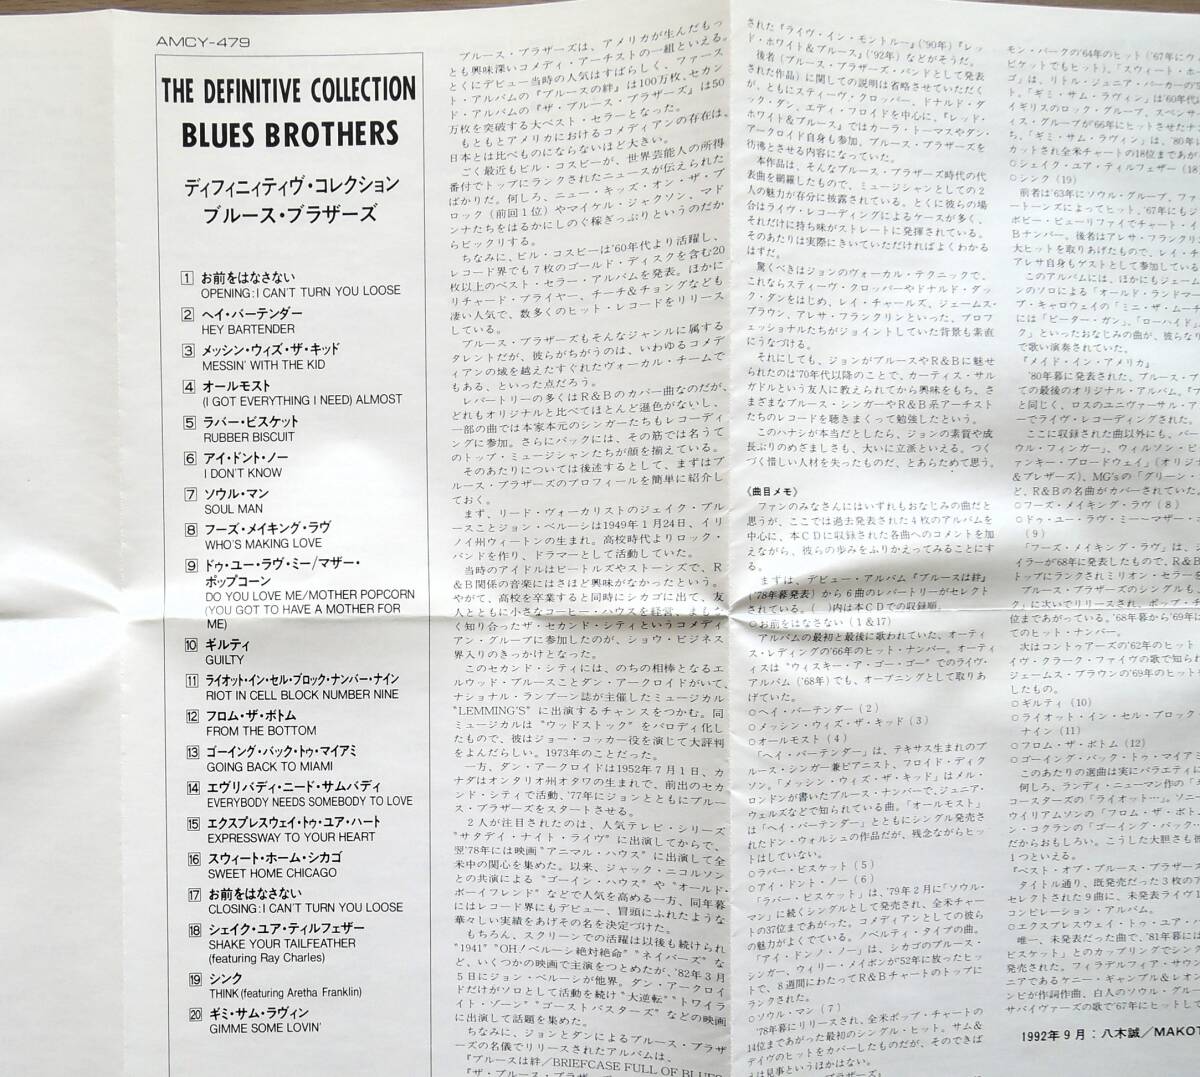 AMCY-479
THE DEFINITIVE COLLECTION
BLUES BROTHERS
ディフィニィティヴ・コレクション
ブルース・ブラザーズ
1 お前をはなさない
OPENING: I CAN'T TURN YOU LOOSE
2 ヘイ・バーテンダー
HEY BARTENDER
3 メッシン・ウィズ・ザ・キッド
MESSIN' WITH THE KID
4 オールモスト
(I GOT EVERYTHING I NEED) ALMOST
5 ラバー・ビスケット
RUBBER BISCUIT
6 アイ・ドント・ノー
I DON'T KNOW
7 ソウル・マン
SOUL MAN
8 フーズ・メイキング・ラヴ
WHO'S MAKING LOVE
9 ドゥ・ユー・ラヴ・ミー/マザー・
ポップコーン
DO YOU LOVE ME/MOTHER POPCORN
(YOU GOT TO HAVE A MOTHER FOR
ME)
10 ギルティ
GUILTY
11 ライオット・イン・セル・ブロック・ナンバー・ナイン
RIOT IN CELL BLOCK NUMBER NINE
12 フロム・ザ・ボトム
FROM THE BOTTOM
13 ゴーイング・バック・トゥ・マイアミ
GOING BACK TO MIAMI
14 エヴリバディ・ニード・サムバディ
EVERYBODY NEEDS SOMEBODY TO LOVE
15 エクスプレスウェイ・トゥ・ユア・ハート
EXPRESSWAY TO YOUR HEART
16 スウィート・ホーム・シカゴ
SWEET HOME CHICAGO
17 お前をはなさない
CLOSING: I CAN'T TURN YOU LOOSE
18 シェイク・ユア・ティルフェザー
SHAKE YOUR TAILFEATHER
(featuring Ray Charles)
19 シンク
THINK (featuring Aretha Franklin)
20 ギミ・サム・ラヴィン
GIMME SOME LOVIN'
ブルース・ブラザーズは、アメリカが生んだもっ
とも興味深いコメディ・アーチストの一組といえる。
とくにデビュー当時の人気はすばらしく、ファース
ト・アルバムの『ブルースの絆』は100万枚、セカン
ド・アルバムの『ザ・ブルース・ブラザーズ』は50
万枚を突破する大ベスト・セラーとなった。
もともとアメリカにおけるコメディアンの存在は、
日本とは比べものにならないほど大きい。
ごく最近もビル・コスビーが、世界芸能人の所得
番付でトップにランクされたニュースが伝えられた
ばかりだ。何しろ、ニュー・キッズ・オン・ザ・ブ
ロック（前回1位）やマイケル・ジャクソン、マド
ンナたちをはるかにしのぐ稼ぎっぷりというのだか
らビックリする。
ちなみに、ビル・コスビーは'60年代より活躍し、
レコード界でも7枚のゴールド・ディスクを含む20
枚以上のベスト・セラー・アルバムを発表。ほかに
リチャード・プライヤー、チーチ&チョングなども
凄い人気で、数多くのヒット・レコードをリリース
している。
ブルース・ブラザーズもそんなジャンルに属する
タレントだが、彼らがちがうのは、いわゆるコメデ
ィアンの域を越えたすぐれたヴォーカル・チームで
もある、といった点だろう。
レパートリーの多くはR&Bのカバー曲なのだが、
どれもオリジナルと比べてほとんど遜色がないし、
一部の曲では本家本元のシンガーたちもレコーディ
ングに参加。さらにバックには、その筋では名うて
のトップ・ミュージシャンたちが顔を揃えている。
そのあたりについては後述するとして、まずはブ
ルース・ブラザーズのプロフィールを簡単に紹介し
ておく。
まず、リード・ヴォーカリストのジェイク・ブル
ースことジョン・ベルーシは1949年1月24日、イリ
ノイ州ウィートンの生まれ。高校時代よりロック・
バンドを作り、ドラマーとして活動していた。
当時のアイドルはビートルズやストーンズで、R
&B関係の音楽にはさほど興味がなかったという。
やがて、高校を卒業すると同時にシカゴに出て、友
人とともに小さなコーヒー・ハウスを経営、まもな
く知り合ったザ・セカンド・シティというコメディ
アン・グループに参加したのが、ショウ・ビジネス
界入りのきっかけとなった。
このセカンド・シティには、のちの相棒となるエ
ルウッド・ブルースことダン・アークロイドがいて、
ナショナル・ランプーン誌が主催したミュージカル
"LEMMING'S"に出演するチャンスをつかむ。同
ミュージカルは"ウッドストック"をパロディ化し
たもので、彼はジョー・コッカー役を演じて大評判
をよんだらしい。1973年のことだった。
一方、ダン・アークロイドは1952年7月1日、カ
ナダはオンタリオ州オタワの生まれで、前出のセカ
ンド・シティで活動、'77年にジョンとともにブルー
ス・ブラザーズをスタートさせる。
2人が注目されたのは、人気テレビ・シリーズ
"サタデイ・ナイト・ライヴ"に出演してからで、
翌'78年には映画"アニマル・ハウス"に出演して全
米中の関心を集めた。以来、ジャック・ニコルソン
との共演による"ゴーイン・ハウス"や"オールド・
ボーイフレンド"などで人気を高める一方、同年暮
にはレコード界にもデビュー、冒頭にふれたような
華々しい実績をあげその名を決定づけた。
もちろん、スクリーンでの活躍は以後も続けられ
"1941""OH!ベルーシ絶対絶命""ネイバーズ"な
ど、いくつかの映画で主演をつとめたが、'82年3月
5日にジョン・ベルーシが他界。ダン・アークロイ
ドだけがソロとして活動を続け"大逆転""トワイラ
イト・ゾーン""ゴーストバスターズ"などの映画
に出演して話題を集めた。
ちなみに、ジョンとダンによるブルース・ブラザ
ーズの名儀でリリースされたアルバムは、
『ブルースは絆/BRIEFCASE FULL OF BLUES
された『ライヴ・イン・モントルー』('90年)『レッ
ド・ホワイト&ブルース』('92年)などがそうだ。
後者(ブルース・ブラザーズ・バンドとして発表
された作品)に関しての説明は省略させていただく
が、ともにスティーヴ・クロッパー、ドナルド・ダ
ック・ダン、エディ・フロイドを中心に、『レッド・
ホワイト&ブルース』ではカーラ・トーマスやダン・
アークロイド自身も参加、ブルース・ブラザーズを
彷彿とさせる内容になっていた。
本作品は、そんなブルース・ブラザーズ時代の代
表曲を網羅したもので、ミュージシャンとしての2
人の魅力が存分に披露されている。とくに彼らの場
合はライヴ・レコーディングによるケースが多く、
それだけに持ち味がストレートに発揮されている。
そのあたりは実際にきいていただければよくわかる
はずだ。
驚くべきはジョンのヴォーカル・テクニックで、
これならスティーヴ・クロッパーやドナルド・ダッ
ク・ダンをはじめ、レイ・チャールズ、ジェームス・
ブラウン、アレサ・フランクリンといった、プロフ
ェッショナルたちがジョイントしていた背景も素直
にうなづける。
それにしても、ジョンがブルースやR&Bに魅せ
られたのは'70年代以降のことで、カーティス・サル
ガドルという友人に教えられてから興味をもち、さ
まざまなブルース・シンガーやR&B系アーチスト
たちのレコードを聴きまくって勉強したという。
このハナシが本当だとしたら、ジョンの素質や成
長ぶりのめざましさも、大いに立派といえる。つく
づく惜しい人材を失ったものだ、とあらためて思う。
《曲目メモ》
ファンのみなさんにはいずれもおなじみの曲だと
思うが、ここでは過去発表された4枚のアルバムを
中心に、本CDに収録された各曲へのコメントを加
えながら、彼らの歩みをふりかえってみることにす
る。
まずは、デビュー・アルバム『ブルースは絆』
('78年暮発表)から6曲のレパートリーがセレクト
されている。( )内は本CDでの収録順。
○お前をはなさない (1&17)
アルバムの最初と最後に歌われていた、オーティ
ス・レディングの'66年のヒット・ナンバー。オーティ
スは"ウィスキー・ア・ゴー・ゴー"でのライヴ・
アルバム('68年)でも、オープニングとして取りあ
げていた。
○ヘイ・バーテンダー (2)
○メッシン・ウィズ・ザ・キッド (3)
○オールモスト (4)
「ヘイ・バーテンダー」は、テキサス生まれのブ
ルース・シンガー兼ピアニスト、フロイド・ディク
ソン、「メッシン・ウィズ・ザ・キッド」はメル・
ロンドンが書いたブルース・ナンバーで、ジュニア・
ウェルズなどで知られている曲。「オールモスト」
は「ヘイ・バーテンダー」とともにシングル発売さ
れたドン・ウォルシュの作品だが、残念ながらヒッ
トはしていない。
○ラバー・ビスケット (5)
○アイ・ドント・ノー (6)
「ラバー・ビスケット」は、'79年2月に「ソウル・
マン」に続くシングルとして発売され、全米チャー
トの37位まであがった。コメディアンとしての彼ら
の魅力がよくでている。ノベルティ・タイプの曲。
「アイ・ドンノ・ノー」は、シカゴのブルース・
シンガー、ウィリー・メイボンが52年に放ったヒッ
トで、8週間にわたってR&Bチャートのトップに
ランクされた。
○ソウル・マン (7)
'78年にリリースされ、全米ポップ・チャートの
14位まであがった最初のシングル・ヒット。サム&
デイヴのヒットをカバーしたものだが、そのできば
えは見事というほかはない。
モン・パークの'64年のヒット('67年にウィ
ピケットでもヒット)。「スウィート・ホ
ゴ」は、リトル・ジュニア・パーカーの
ト。「ギミ・サム・ラヴィン」は'60年代
イギリスのロック・グループ、スペンサ
ィス・グループが'66年にヒットさせたナ
ち、「ギミ・サム・ラヴィン」は、'80年に
カットされ全米チャートの18位まであが
○シェイク・ユア・ティルフェザー (18
○シンク (19)
前者は'63年にソウル・グループ、ファ
ートーンズによってヒット。'67年にも
ボビー・ピューリファイでチャート・イ
Bナンバー。後者はアレサ・フランクリ
大ヒットを取りあげたもので、レイ・チ
アレサ自身もゲストとして参加している
このアルバムには、ほかにもジェーム
ンのソロによる「オールド・ランドマー
ブ・キャロウェイの「ミニ・ザ・ムーチ
には「ピーター・ガン」、「ローハイド
ク」といったおなじみの曲が、彼らなり
で歌い演奏されていた。
『メイド・イン・アメリカ』
'80年暮に発表された、ブルース・ブ
ての最後のオリジナル・アルバム。『
と同じく、ロスのユニヴァーサル・アン
ーでライヴ・レコーディングされた。
ここに収録された曲以外にも、バー
ウル・フィンガー」、ウィルソン・ピ
ァンキー・ブロードウェイ」(オリジ
&ブレザーズ)、MG'sの「グリーン・
ど、R&Bの名曲がカバーされていた。
○フーズ・メイキング・ラヴ (8)
○ドゥ・ユー・ラヴ・ミー～マザー・
(9)
「フーズ・メイキング・ラヴ」は、ジ
イラーが'68年に発売したもので、R&B
トップにランクされミリオン・セラー
ブラザーズのシングルも、
ク」に次いでリリースされ、ポップ・チ
位まであがっている。'68年暮から'69年
てのヒット・ナンバー。
次はコントゥアーズの'62年のヒット
イヴ・クラーク・ファイヴの歌で知られ
ジェームス・ブラウンの'69年のヒット
したもの。
○ギルティ (10)
○ライオット・イン・セル・ブロック
ナイン (11)
○フロム・ザ・ボトム (12)
○ゴーイング・バック・トゥ・マイアミ
このあたりの選曲は実にバラエティに
何しろ、ランディ・ニューマン作の「ギ
コースターズの「ライオット…」、ソニー
ウイリアムソンの「フロム・ザ・ボトム
ン・コクランの「ゴーイング・バック・
だからおもしろい。こうした大胆さも彼
1つといえる。
『ベスト・オブ・ブルース・ブラザーズ
タイトル通り、既発売だった3枚のア
セレクトされた9曲に、未発表ライヴ1
コンピレーション・アルバム。
○エクスプレスウェイ・トゥ・ユア・
唯一、未発表だった曲で、'81年には
ビスケット」とのカップリングでシング
発売された。フィラデルフィア・サウン
ニアであるケニー・ギャンブル&レオン
ンビが作詞作曲、白人のソウル・グルー
サバイヴァーズの歌で'67年にヒットして
1992年9月：八木誠／MAKOT